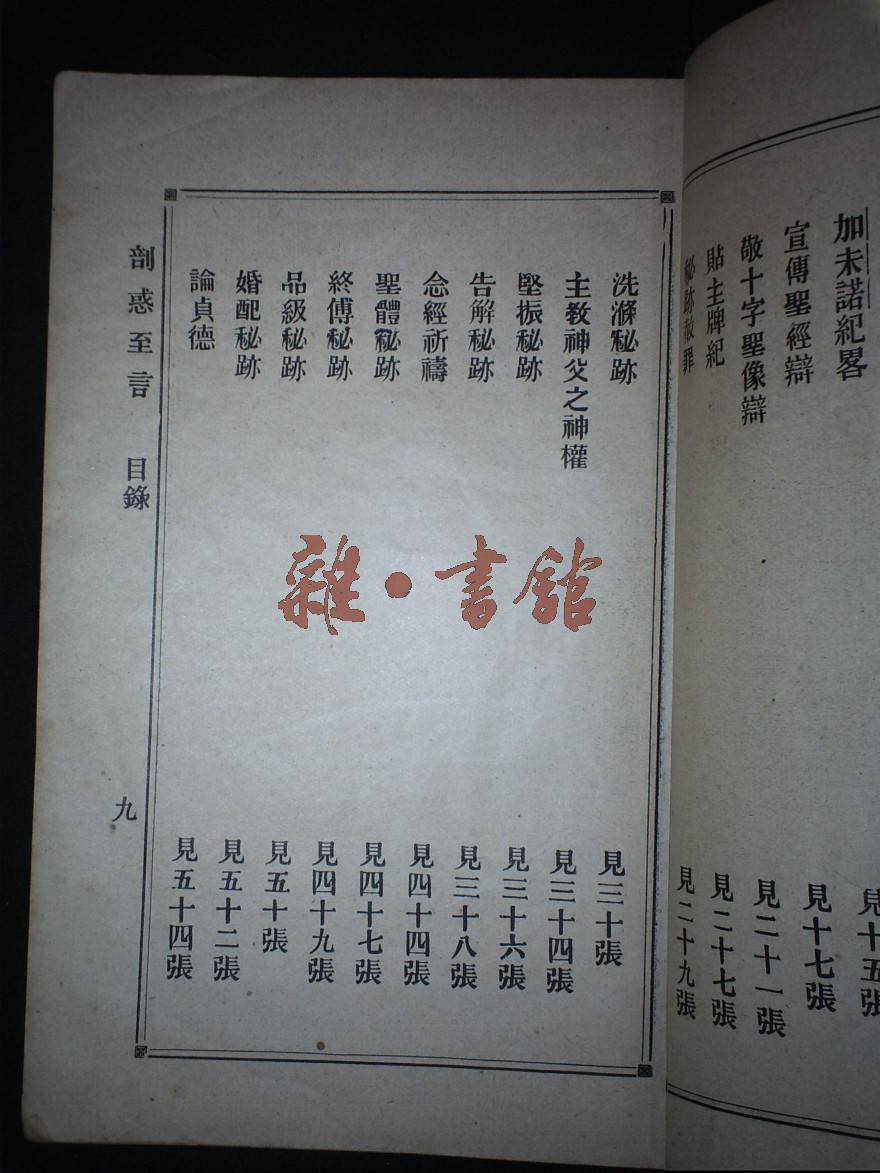 加未諾紀畧 見十五張
宣傳聖經辯 見十七張
敬十字聖像辯 見二十一張
貼主牌紀 見二十七張
秘跡赦罪 見二十九張
洗滌秘跡 見三十張
主教神父之神權 見三十四張
堅振秘跡 見三十六張
告解秘跡 見三十八張
念經祈禱 見四十四張
聖體秘跡 見四十七張
終傅秘跡 見四十九張
品級秘跡 見五十張
婚配秘跡 見五十二張
論貞德 見五十四張
剖惑至言 目錄 九
雜·書館